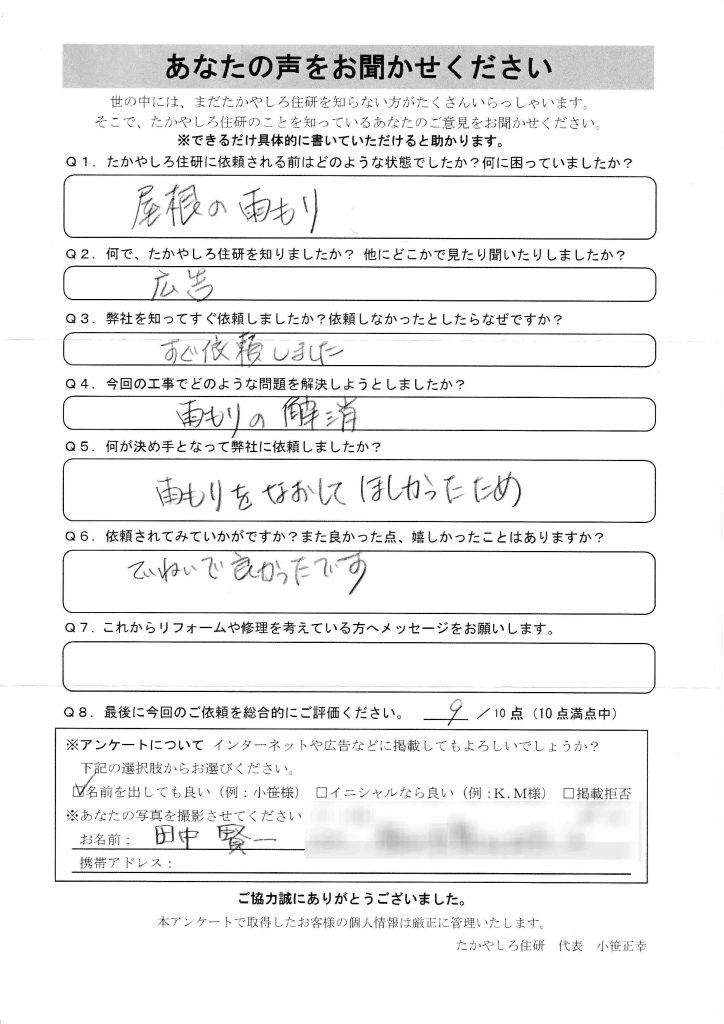 あなたの声をお聞かせください
世の中には、まだたかやしろ住研を知らない方がたくさんいらっしゃいます。
そこで、たかやしろ住研のことを知っているあなたのご意見をお聞かせください。
※できるだけ具体的に書いていただけると助かります。
Q1．たかやしろ住研に依頼される前はどのような状態でしたか？何に困っていましたか？
屋根の雨もり
Q2．何で、たかやしろ住研を知りましたか？ 他にどこかで見たり聞いたりしましたか？
広告
Q3．弊社を知ってすぐ依頼しましたか？依頼しなかったとしたらなぜですか？
すぐ依頼しました
Q4．今回の工事でどのような問題を解決しようとしましたか？
雨もりの解消
Q5．何が決め手となって弊社に依頼しましたか？
雨もりをなおしてほしかったため
Q6．依頼されてみていかがですか？また良かった点、嬉しかったことはありますか？
ていねいで良かったです
Q7．これからリフォームや修理を考えている方へメッセージをお願いします。
Q8．最後に今回のご依頼を総合的にご評価ください。 9 ／10点（10点満点中）
※アンケートについて インターネットや広告などに掲載してもよろしいでしょうか？
下記の選択肢からお選びください。
☑名前を出しても良い（例：小笹様） □イニシャルなら良い（例：K.M様） □掲載拒否
※あなたの写真を撮影させてください
お名前： 田中 賢一
携帯アドレス：
ご協力誠にありがとうございました。
本アンケートで取得したお客様の個人情報は厳正に管理いたします。
たかやしろ住研 代表 小笹正幸